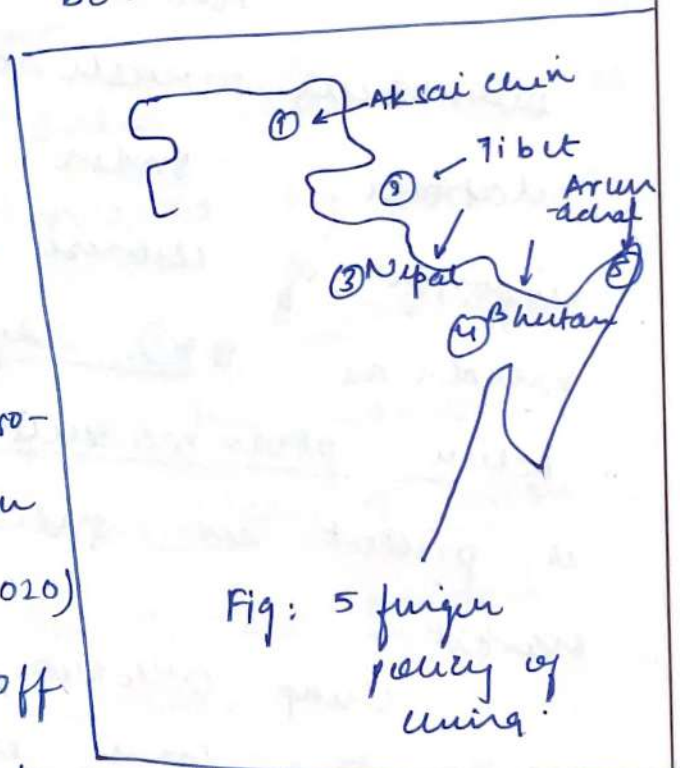 ① Aksai Chin
② Tibet
Arun
-achal
③ Nepal
⑤
④ Bhutan
so-
020)
off
Fig: 5 finger
policy of
China.